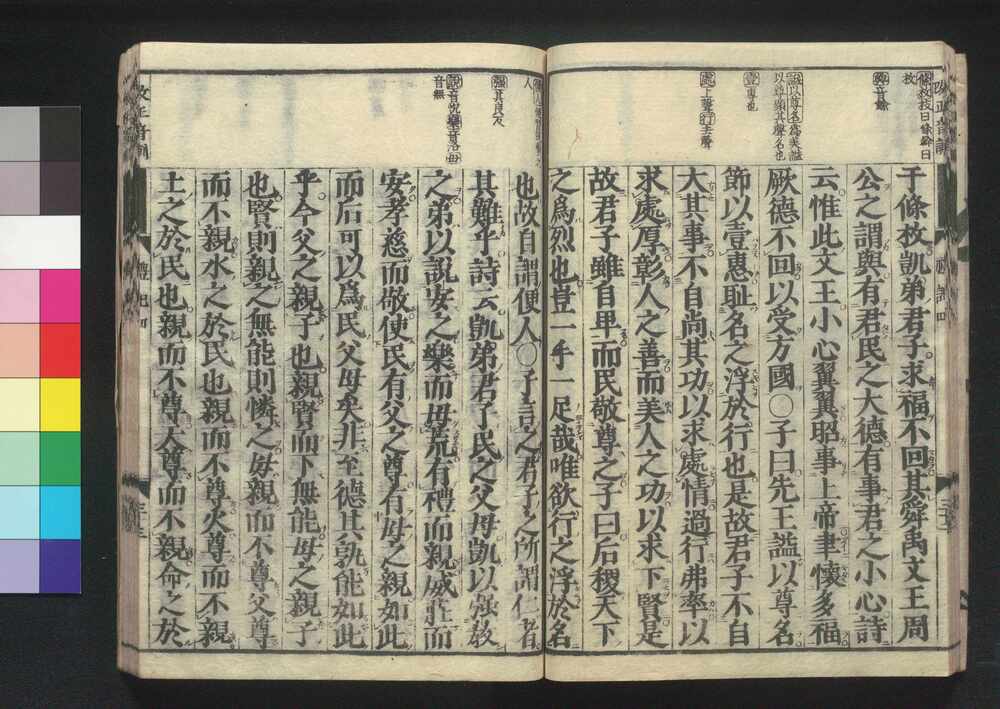 于條枚凱弟君子求福不回其舜禹文王周
公之謂與有君民之大德有事君之小心詩
云惟此文王小心翼翼昭事上帝聿懷多福
厥德不回以受方國○子曰先王謚以尊名
節以壹惠恥名之浮於行也是故君子不自
大其事不自尚其功以求處情過行弗率以
求處厚彰人之善而美人之功以求下賢是
故君子雖自卑而民敬尊之子曰后稷天下
之為烈也豈一手一足哉唯欲行之浮於名
也故自謂便人○子言之君子之所謂仁者
其難乎詩云凱弟君子民之父母凱以強敎
之弟以說安之樂而毋荒有禮而親威莊而
安孝慈而敬使民有父之尊有母之親如此
而后可以為民父母矣非至德其孰能如此
乎今父之親子也親賢而下無能母之親子
也賢則親之無能則憐之母親而不尊父尊
而不親水之於民也親而不尊火尊而不親
土之於民也親而不尊天尊而不親命之於
條枚枚曰條幹曰
枚
與音餘
謚以尊名為美謚
以尊顯其聲名也
壹專也
處上聲行去聲
強其良反
說音悅樂音洛毋
音無